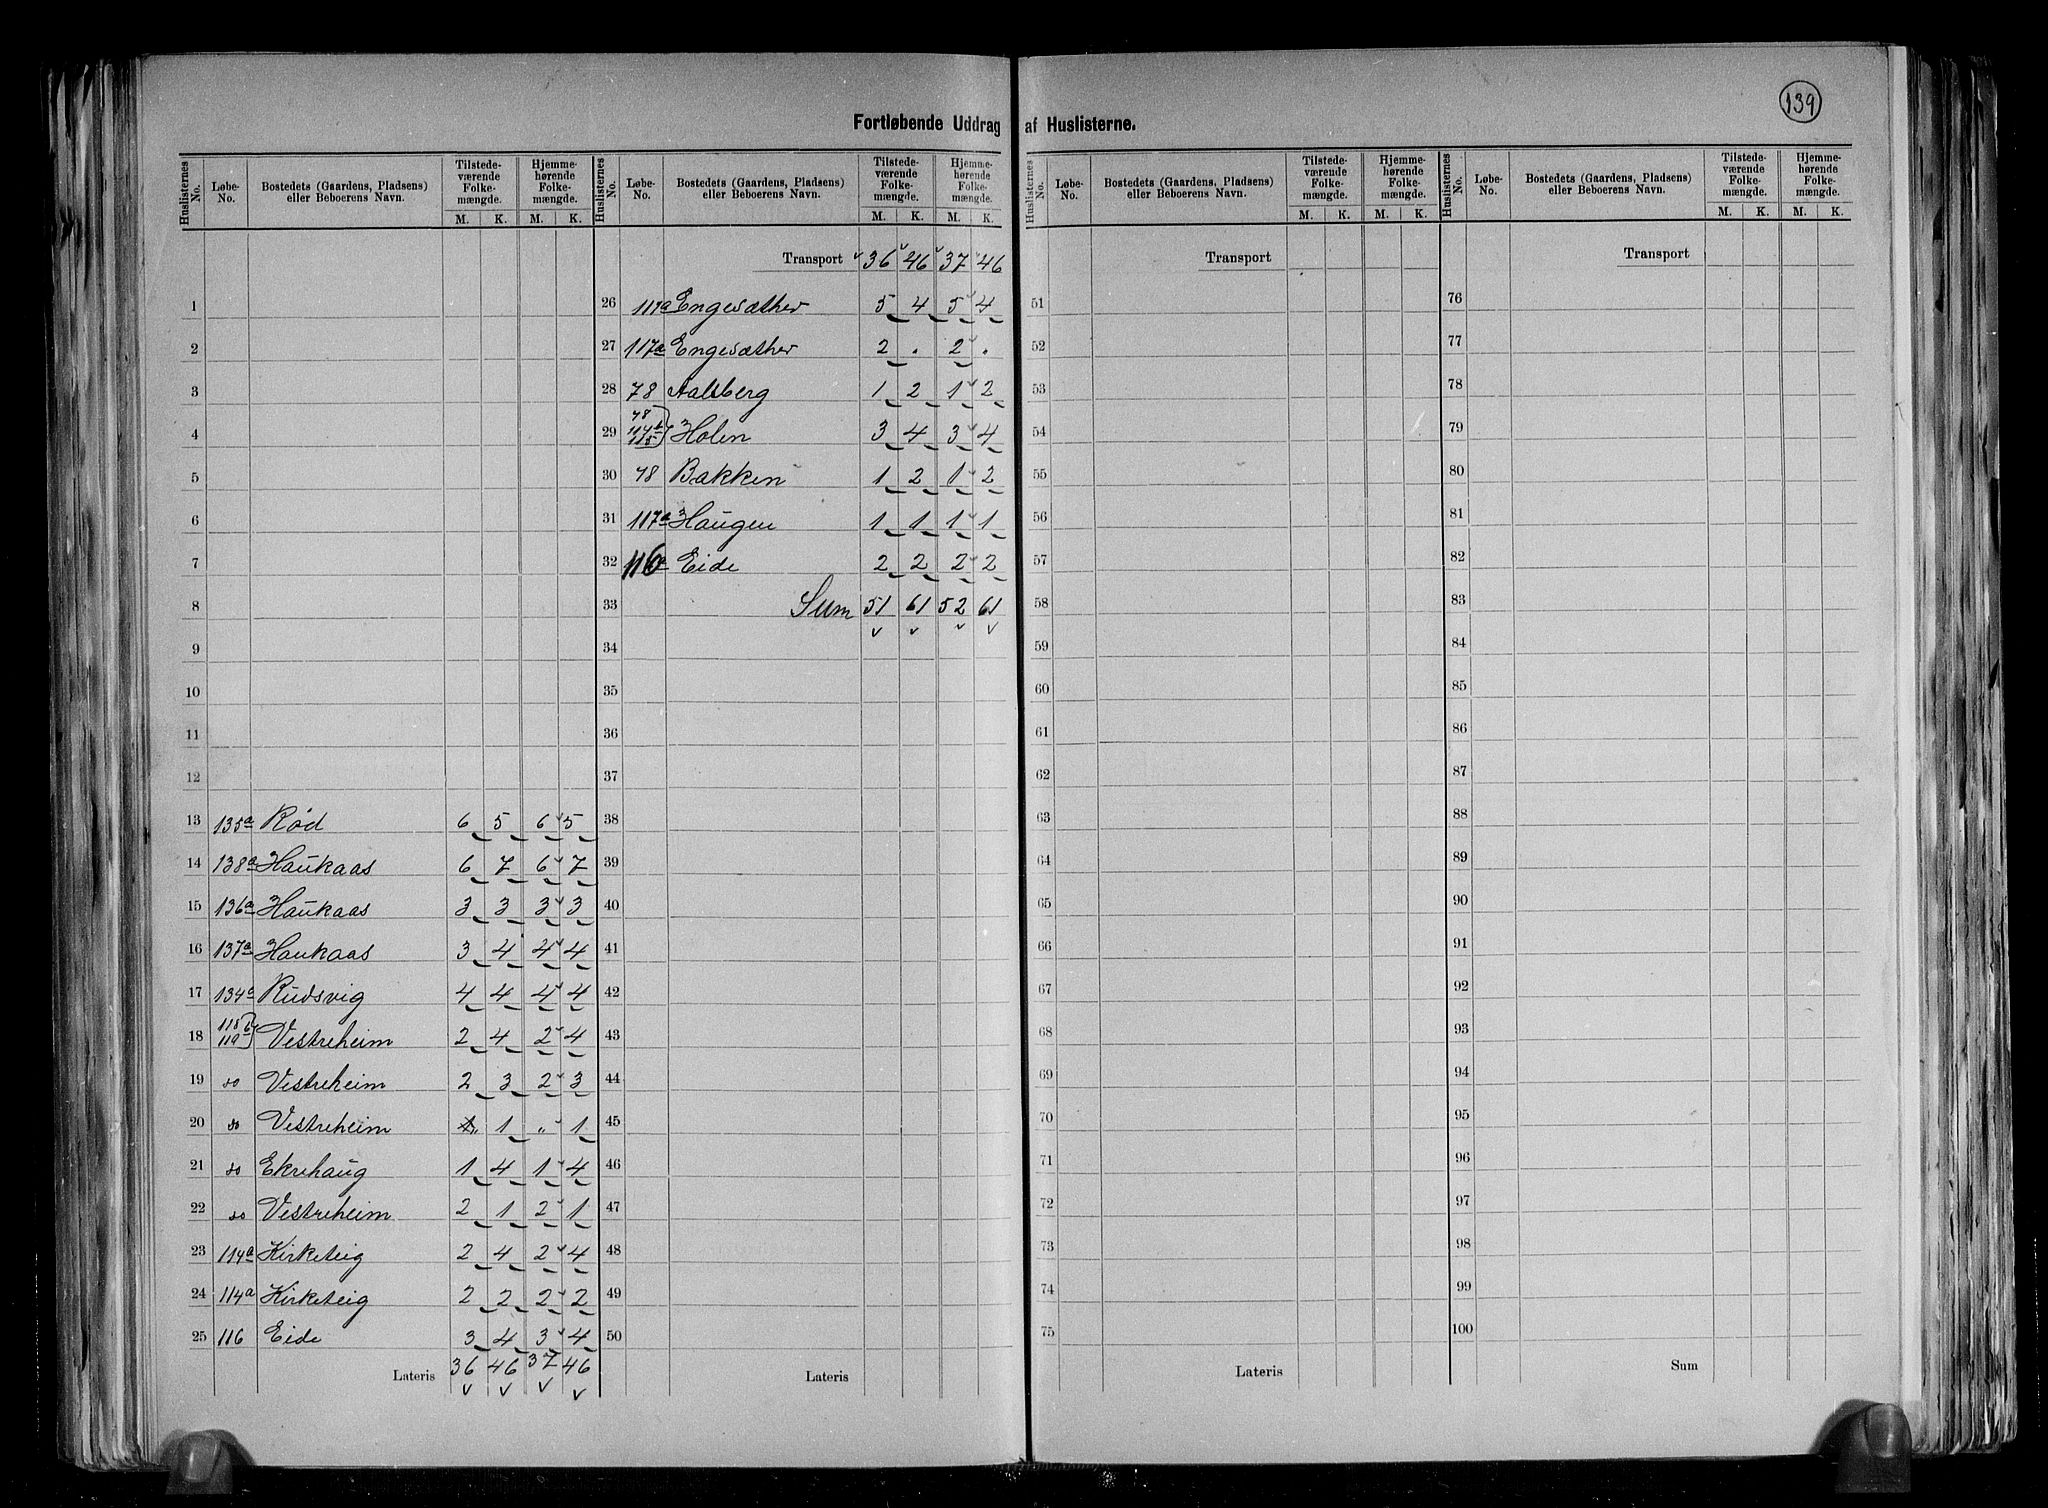 139
Fortløbende Uddrag af Huslisterne.
Huslisternes No. Løbe-No. Bostedets (Gaardens, Pladsens) eller Beboerens Navn. Tilstedeværende Folkemængde. M. K. Hjemmehørende Folkemængde. M. K.
1
2
3
4
5
6
7
8
9
10
11
12
13 135a Rød 6 5 6 5
14 138a Haukaas 6 7 6 7
15 136a Haukaas 3 3 3 3
16 137a Haukaas 3 4 4 4
17 134a Rudsvig 4 4 4 4
18 118b 119 Vestreheim 2 4 2 4
19 do Vestreheim 2 3 2 3
20 do Vestreheim „ 1 „ 1
21 do Ekrehaug 1 4 1 4
22 do Vestreheim 2 1 2 1
23 114a Kirketeig 2 4 2 4
24 114a Kirketeig 2 2 2 2
25 116 Eide 3 4 3 4
Lateris 36 46 37 46
Huslisternes No. Løbe-No. Bostedets (Gaardens, Pladsens) eller Beboerens Navn. Tilstedeværende Folkemængde. M. K. Hjemmehørende Folkemængde. M. K.
Transport 36 46 37 46
26 117a Engesæther 5 4 5 4
27 117a Engesæther 2 . 2 .
28 78 Aalberg 1 2 1 2
29 78 114b 115 Holen 3 4 3 4
30 78 Bakken 1 2 1 2
31 117a Haugen 1 1 1 1
32 116a Eide 2 2 2 2
33 Sum 51 61 52 61
34
35
36
37
38
39
40
41
42
43
44
45
46
47
48
49
50
Lateris
Huslisternes No. Løbe-No. Bostedets (Gaardens, Pladsens) eller Beboerens Navn. Tilstedeværende Folkemængde. M. K. Hjemmehørende Folkemængde. M. K.
Transport
51
52
53
54
55
56
57
58
59
60
61
62
63
64
65
66
67
68
69
70
71
72
73
74
75
Lateris
Huslisternes No. Løbe-No. Bostedets (Gaardens, Pladsens) eller Beboerens Navn. Tilstedeværende Folkemængde. M. K. Hjemmehørende Folkemængde. M. K.
Transport
76
77
78
79
80
81
82
83
84
85
86
87
88
89
90
91
92
93
94
95
96
97
98
99
100
Sum